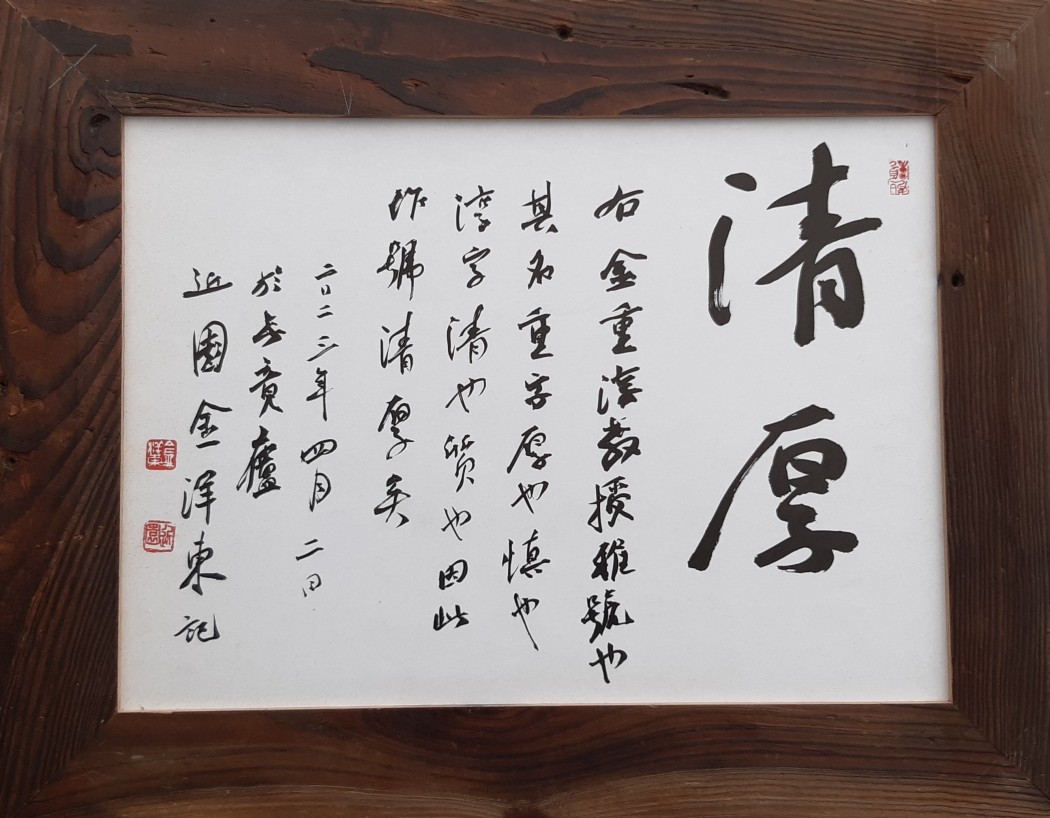 清厚
右金重淳教授雅號也
其名重字厚也慎也
淳字清也質也因此
作號清厚矣
二〇二三年四月二日
於 廬
近園金洋東記
近園